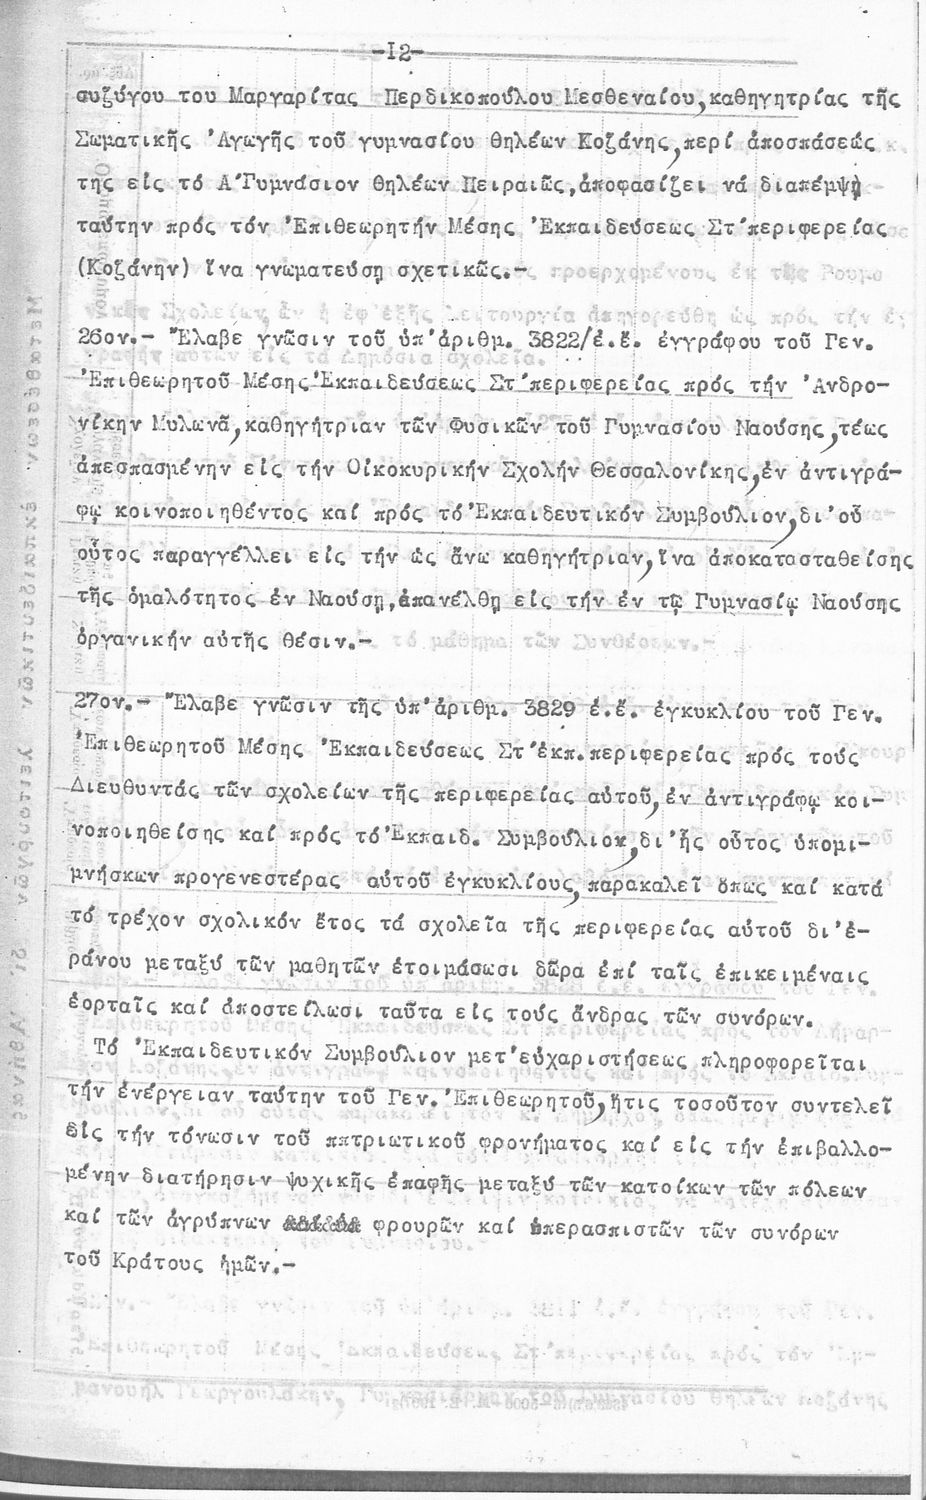 -I2-
συζύγου του Μαργαρίτας Περδικοπούλου Μεσθεναίου, καθηγητρίας τῆς
Σωματικῆς Ἀγωγῆς τοῦ γυμνασίου θηλέων Κοζάνης, περί ἀποσπάσεώς
της εἰς τό Α΄Γυμνάσιον θηλέων Πειραιῶς, ἀποφασίζει νά διαπέμψῃ
ταύτην πρός τόν Ἐπιθεωρητήν Μέσης Ἐκπαιδεύσεως Στ΄περιφερείας
(Κοζάνην) ἵνα γνωματεύσῃ σχετικῶς.-
26ον.- Ἔλαβε γνῶσιν τοῦ ὑπ'ἀριθμ. 3822/ἐ.ἔ. ἐγγράφου τοῦ Γεν.
Ἐπιθεωρητοῦ Μέσης Ἐκπαιδεύσεως Στ΄περιφερείας πρός τήν Ἀνδρο-
νίκην Μυλωνᾶ, καθηγήτριαν τῶν Φυσικῶν τοῦ Γυμνασίου Ναούσης, τέως
ἀπεσπασμένην εἰς τήν Οἰκοκυρικήν Σχολήν Θεσσαλονίκης, ἐν ἀντιγρά-
φῳ κοινοποιηθέντος καί πρός τό Ἐκπαιδευτικόν Συμβούλιον, δι'οὗ
οὗτος παραγγέλλει εἰς τήν ὡς ἄνω καθηγήτριαν, ἵνα ἀποκατασταθείσης
τῆς ὁμαλότητος ἐν Ναούσῃ, ἐπανέλθῃ εἰς τήν ἐν τῷ Γυμνασίῳ Ναούσης
ὀργανικήν αὐτῆς θέσιν.-
27ον.- Ἔλαβε γνῶσιν τῆς ὑπ'ἀριθμ. 3829 ἐ.ἔ. ἐγκυκλίου τοῦ Γεν.
Ἐπιθεωρητοῦ Μέσης Ἐκπαιδεύσεως Στ΄ἐκπ.περιφερείας πρός τούς
Διευθυντάς τῶν σχολείων τῆς περιφερείας αὐτοῦ, ἐν ἀντιγράφῳ κοι-
νοποιηθείσης καί πρός τό Ἐκπαιδ. Συμβούλιον, δι'ἧς οὗτος ὑπομι-
μνήσκων προγενεστέρας αὐτοῦ ἐγκυκλίους, παρακαλεῖ ὅπως καί κατά
τό τρέχον σχολικόν ἔτος τά σχολεῖα τῆς περιφερείας αὐτοῦ δι'ἐ-
ράνου μεταξύ τῶν μαθητῶν ἑτοιμάσωσι δῶρα ἐπί ταῖς ἐπικειμέναις
ἑορταῖς καί ἀποστείλωσι ταῦτα εἰς τούς ἄνδρας τῶν συνόρων.
Τό Ἐκπαιδευτικόν Συμβούλιον μετ'εὐχαριστήσεως πληροφορεῖται
τήν ἐνέργειαν ταύτην τοῦ Γεν. Ἐπιθεωρητοῦ, ἥτις τοσοῦτον συντελεῖ
εἰς τήν τόνωσιν τοῦ πατριωτικοῦ φρονήματος καί εἰς τήν ἐπιβαλλο-
μένην διατήρησιν ψυχικῆς ἐπαφῆς μεταξύ τῶν κατοίκων τῶν πόλεων
καί τῶν ἀγρύπνων φρουρῶν καί ὑπερασπιστῶν τῶν συνόρων
τοῦ Κράτους ἡμῶν.-